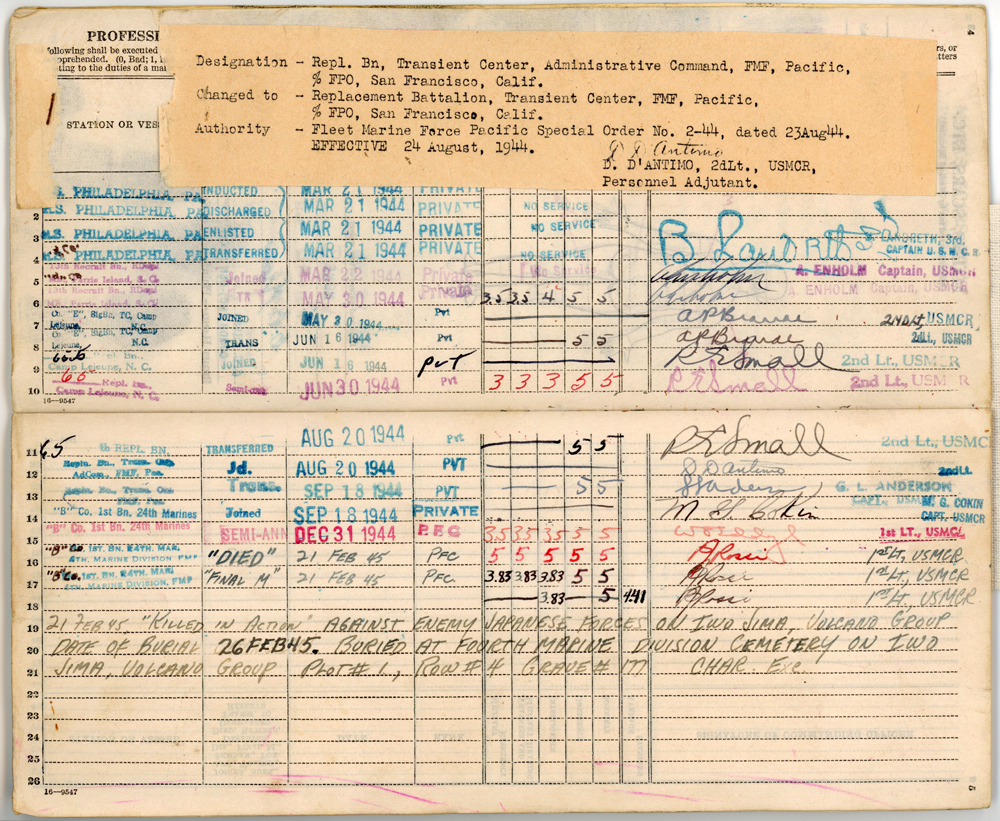 PROFESSI
following shall be executed
pprehended. (0, Bad; 1, 
ting to the duties of a mar
rs, or
tters
STATION OR VES
24
Designation - Repl. Bn, Transient Center, Administrative Command, FMF, Pacific,
% FPO, San Francisco, Calif.
Changed to - Replacement Battalion, Transient Center, FMF, Pacific,
% FPO, San Francisco, Calif.
Authority - Fleet Marine Force Pacific Special Order No. 2-44, dated 23Aug44.
EFFECTIVE 24 August, 1944.
D D'Antimo
D. D'ANTIMO, 2dLt., USMCR,
Personnel Adjutant.
PHILADELPHIA, PA INDUCTED MAR 21 1944 PRIVATE
2 M.S. PHILADELPHIA, PA DISCHARGED MAR 21 1944 PRIVATE NO SERVICE
3 M.S. PHILADELPHIA, PA ENLISTED MAR 21 1944 PRIVATE NO SERVICE
4 M.S. PHILADELPHIA, PA TRANSFERRED MAR 21 1944 PRIVATE NO SERVICE LANGRETH, 3rd. CAPTAIN U. S. M. C. R.
5 Recruit Bn., Joined MAR 22 1944 Private No Service A. ENHOLM Captain, USMCR
6 Recruit Bn., MAY 30 1944 Private 3.5 3.5 4 5 5 A. ENHOLM Captain, USMCR
7 Co. "E", SigBn, TC, Camp Lejeune, N.C. JOINED MAY 30 1944 Pvt 2ND Lt, USMCR
8 Co. "E", SigBn, TC, Camp Lejeune, N.C. TRANS JUN 16 1944 Pvt 5 5 2dLt, USMCR
9 Camp Lejeune, N. C. JOINED JUN 16 1944 Pvt R E Small 2nd Lt., USMCR
10 65 Repl. Bn., Camp Lejeune, N. C. Semi-ann JUN 30 1944 Pvt 3 3 3 5 5 R E Small 2nd Lt., USMCR
16—9547
11 65 th REPL. BN. TRANSFERRED AUG 20 1944 Pvt 5 5 R E Small 2nd Lt., USMC
12 Repln. Bn., Trans. Cen. AdCom., FMF, Pac. Jd. AUG 20 1944 PVT D D'Antimo 2ndLt.
13 Repln. Bn., Trans. Cen FMF, Pac. Trans. SEP 18 1944 PVT 5 5 G. L. ANDERSON CAPT., USMCR
14 "B" Co. 1st Bn. 24th Marines Joined SEP 18 1944 PRIVATE M G Cokin M. G. COKIN CAPT. USMCR
15 "B" Co. 1st Bn. 24th Marines SEMI-ANN DEC 31 1944 P.F.C. 3.5 3.5 3.5 5 5 1st LT., USMC
16 "B" Co. 1ST. BN. 24TH. MAR. 4TH. MARINE DIVISION, FMF "DIED" 21 FEB 45 PFC 5 5 5 5 5 A Rossi 1st Lt, USMCR
17 "B" Co. 1ST. BN. 24TH MAR. 4TH. MARINE DIVISION, FMF "FINAL M" 21 FEB 45 PFC. 3.83 3.83 3.83 5 5 A Rossi 1st Lt, USMCR
18 3.83 5 4.41 A Rossi 1st Lt USMCR
19 21 FEB 45 "KILLED IN ACTION" AGAINST ENEMY JAPANESE FORCES ON IWO JIMA, VOLCANO GROUP
20 DATE OF BURIAL 26 FEB 45. BURIED AT FOURTH MARINE DIVISION CEMETERY ON IWO
21 JIMA, VOLCANO GROUP PLOT # 1, ROW # 4 GRAVE # 177 CHAR. EXC.
22
23
24
25
26
16—9547
5